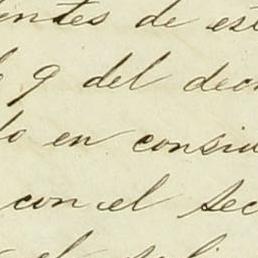 entes de est
9 del decr
do en consid
con el sec